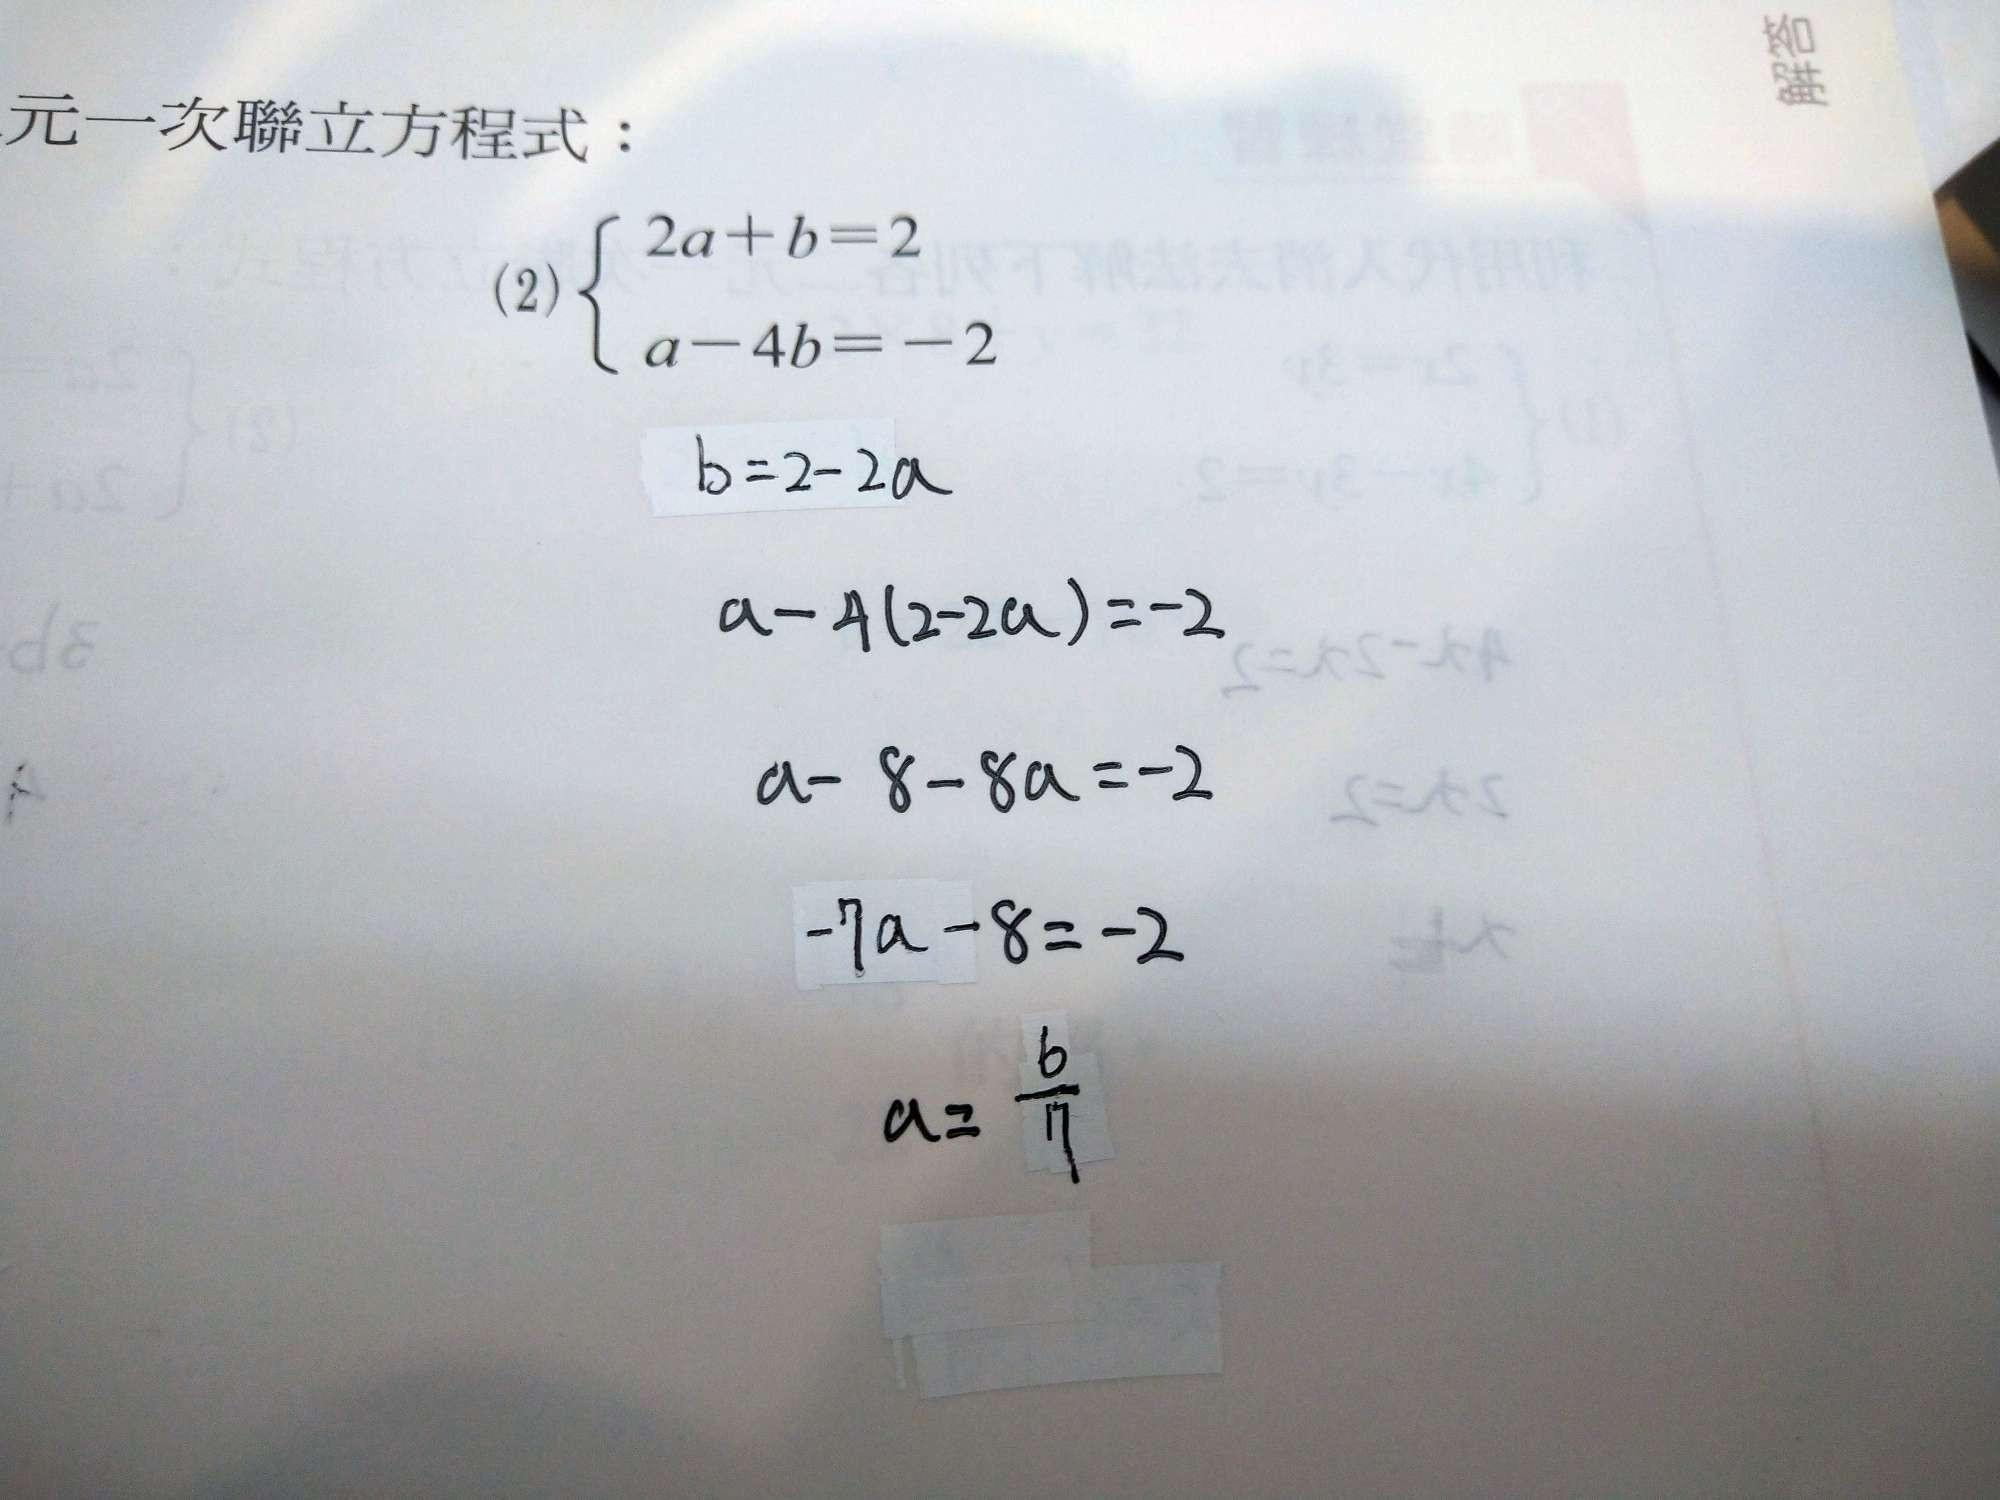 解答
元一次聯立方程式：
(2) { 2a+b=2
a-4b=-2
b=2-2a
a-4(2-2a)=-2
a-8-8a=-2
-7a-8=-2
a=6/7